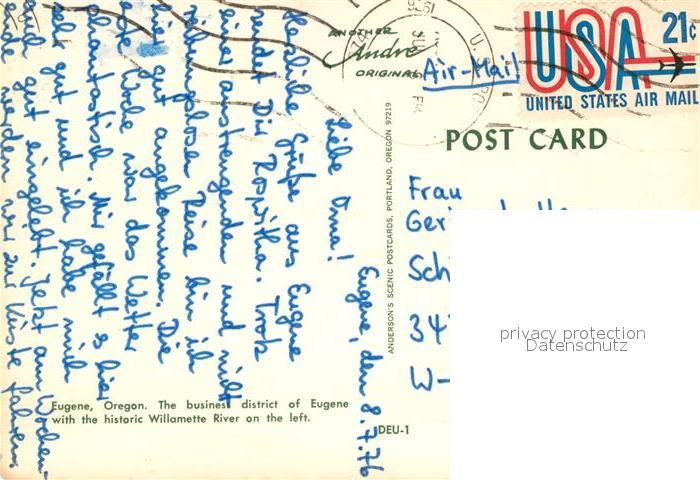 ANOTHER
André
ORIGINAL
Air-Mail
USA 21c
UNITED STATES AIR MAIL
1976
POST CARD
Frau
34
W-
privacy protection
Datenschutz
ANDERSON'S SCENIC POSTCARDS, PORTLAND, OREGON 97219
Eugene, den 8.7.76
Liebe Oma!
Herzliche Grüße aus Eugene
sendet Dir Roswitha. Trotz
einer anstrengenden und nicht
reibungslosen Reise bin ich
hier gut angekommen. Die
erste Woche war das Wetter
phantastisch. Mir gefällt es hier
sehr gut und ich habe mich
auch gut eingelebt. Jetzt am Wochen-
ende werden wir zur Küste fahren.
Eugene, Oregon. The business district of Eugene
with the historic Willamette River on the left.
DEU-1